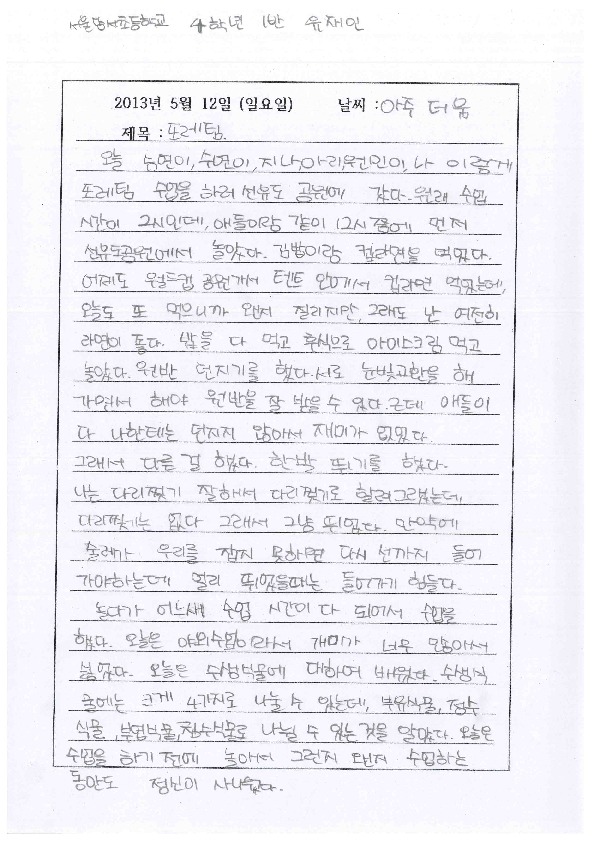 서울당서초등학교 4학년 1반 유재인
2013년 5월 12일 (일요일) 날씨 : 아주 더움
제목 : 포레팀
오늘 승연이, 수연이, 지나, 아리, 원민이, 나 이렇게
포레팀 수업을 하러 선유도 공원에 갔다. 원래 수업
시간이 2시인데, 애들이랑 같이 12시쯤에 먼저
선유도공원에서 놀았다. 김밥이랑 컵라면을 먹었다.
어제도 월드컵 공원가서 텐트 안에서 컵라면 먹었는데,
오늘도 또 먹으니까 왠지 질리지만, 그래도 난 여전히
라면이 좋다. 밥을 다 먹고 후식으로 아이스크림 먹고
놀았다. 원반 던지기를 했다. 서로 눈빛교환을 해
가면서 해야 원반을 잘 받을 수 있다. 근데 애들이
다 나한테는 던지지 않아서 재미가 없었다.
그래서 다른 걸 했다. 한발 뛰기를 했다.
나는 다리찢기 잘해서 다리찢기로 할려그랬는데,
다리찢기는 없다 그래서 그냥 뛰었다. 만약에
술래가 우리를 잡지 못하면 다시 선까지 들어
가야하는데 멀리 뛰었을때는 들어가기 힘들다.
놀다가 어느새 수업 시간이 다 되어서 수업을
했다. 오늘은 야외수업이라서 개미가 너무 많아서
싫었다. 오늘은 수생식물에 대하여 배웠다. 수생식
물에는 크게 4가지로 나눌 수 있는데, 부유식물, 정수
식물, 부엽식물, 침수식물로 나뉠 수 있는 것을 알았다. 오늘은
수업을 하기 전에 놀아서 그런지 왠지 수업하는
동안도 정신이 사나웠다.